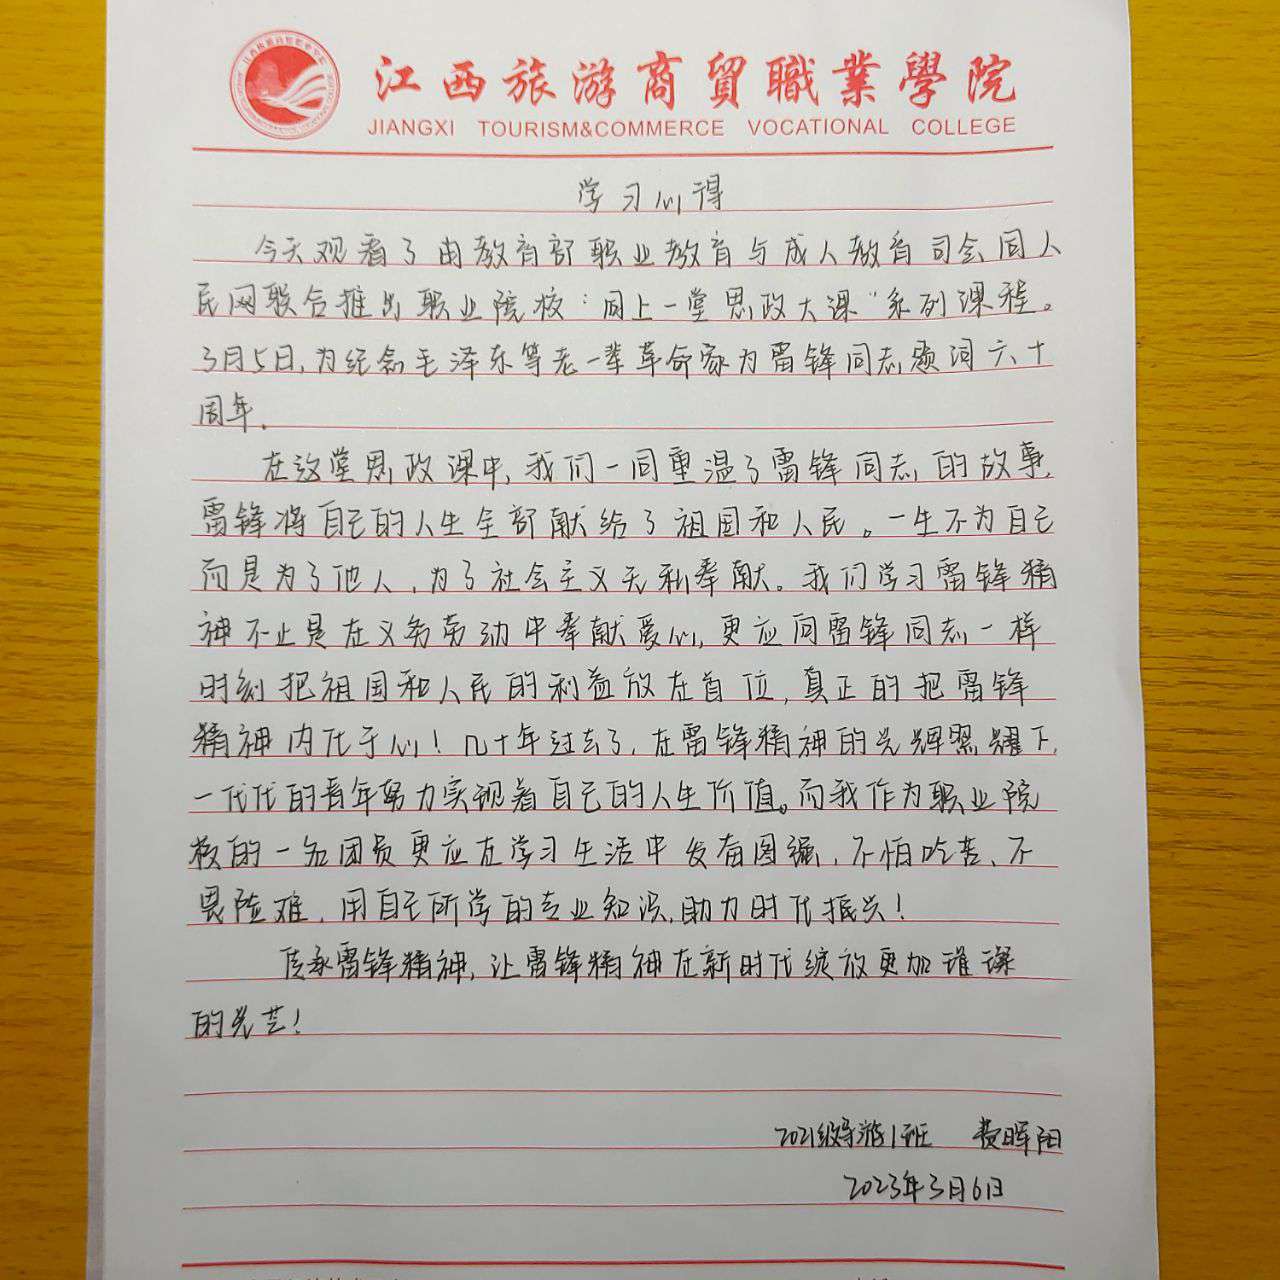 江西旅游商貿職業學院
JIANGXI TOURISM&COMMERCE VOCATIONAL COLLEGE
学习心得
今天观看了由教育部职业教育与成人教育司会同人
民网联合推出职业院校“同上一堂思政大课”系列课程。
3月5日,为纪念毛泽东等老一辈革命家为雷锋同志题词六十
周年.
在这堂思政课中,我们一同重温了雷锋同志的故事,
雷锋将自己的人生全部献给了祖国和人民。一生不为自己
而是为了他人,为了社会主义无私奉献。我们学习雷锋精
神不止是在义务劳动中奉献爱心,更应向雷锋同志一样
时刻把祖国和人民的利益放在首位,真正的把雷锋
精神内化于心!几十年过去了,在雷锋精神的光辉照耀下,
一代代的青年努力实现着自己的人生价值。而我作为职业院
校的一名团员更应在学习生活中发奋图强、不怕吃苦、不
畏险难,用自己所学的专业知识,助力时代振兴!
传承雷锋精神,让雷锋精神在新时代绽放更加璀璨
的光芒!
2021级导游1班 袁晖阳
2023年3月6日